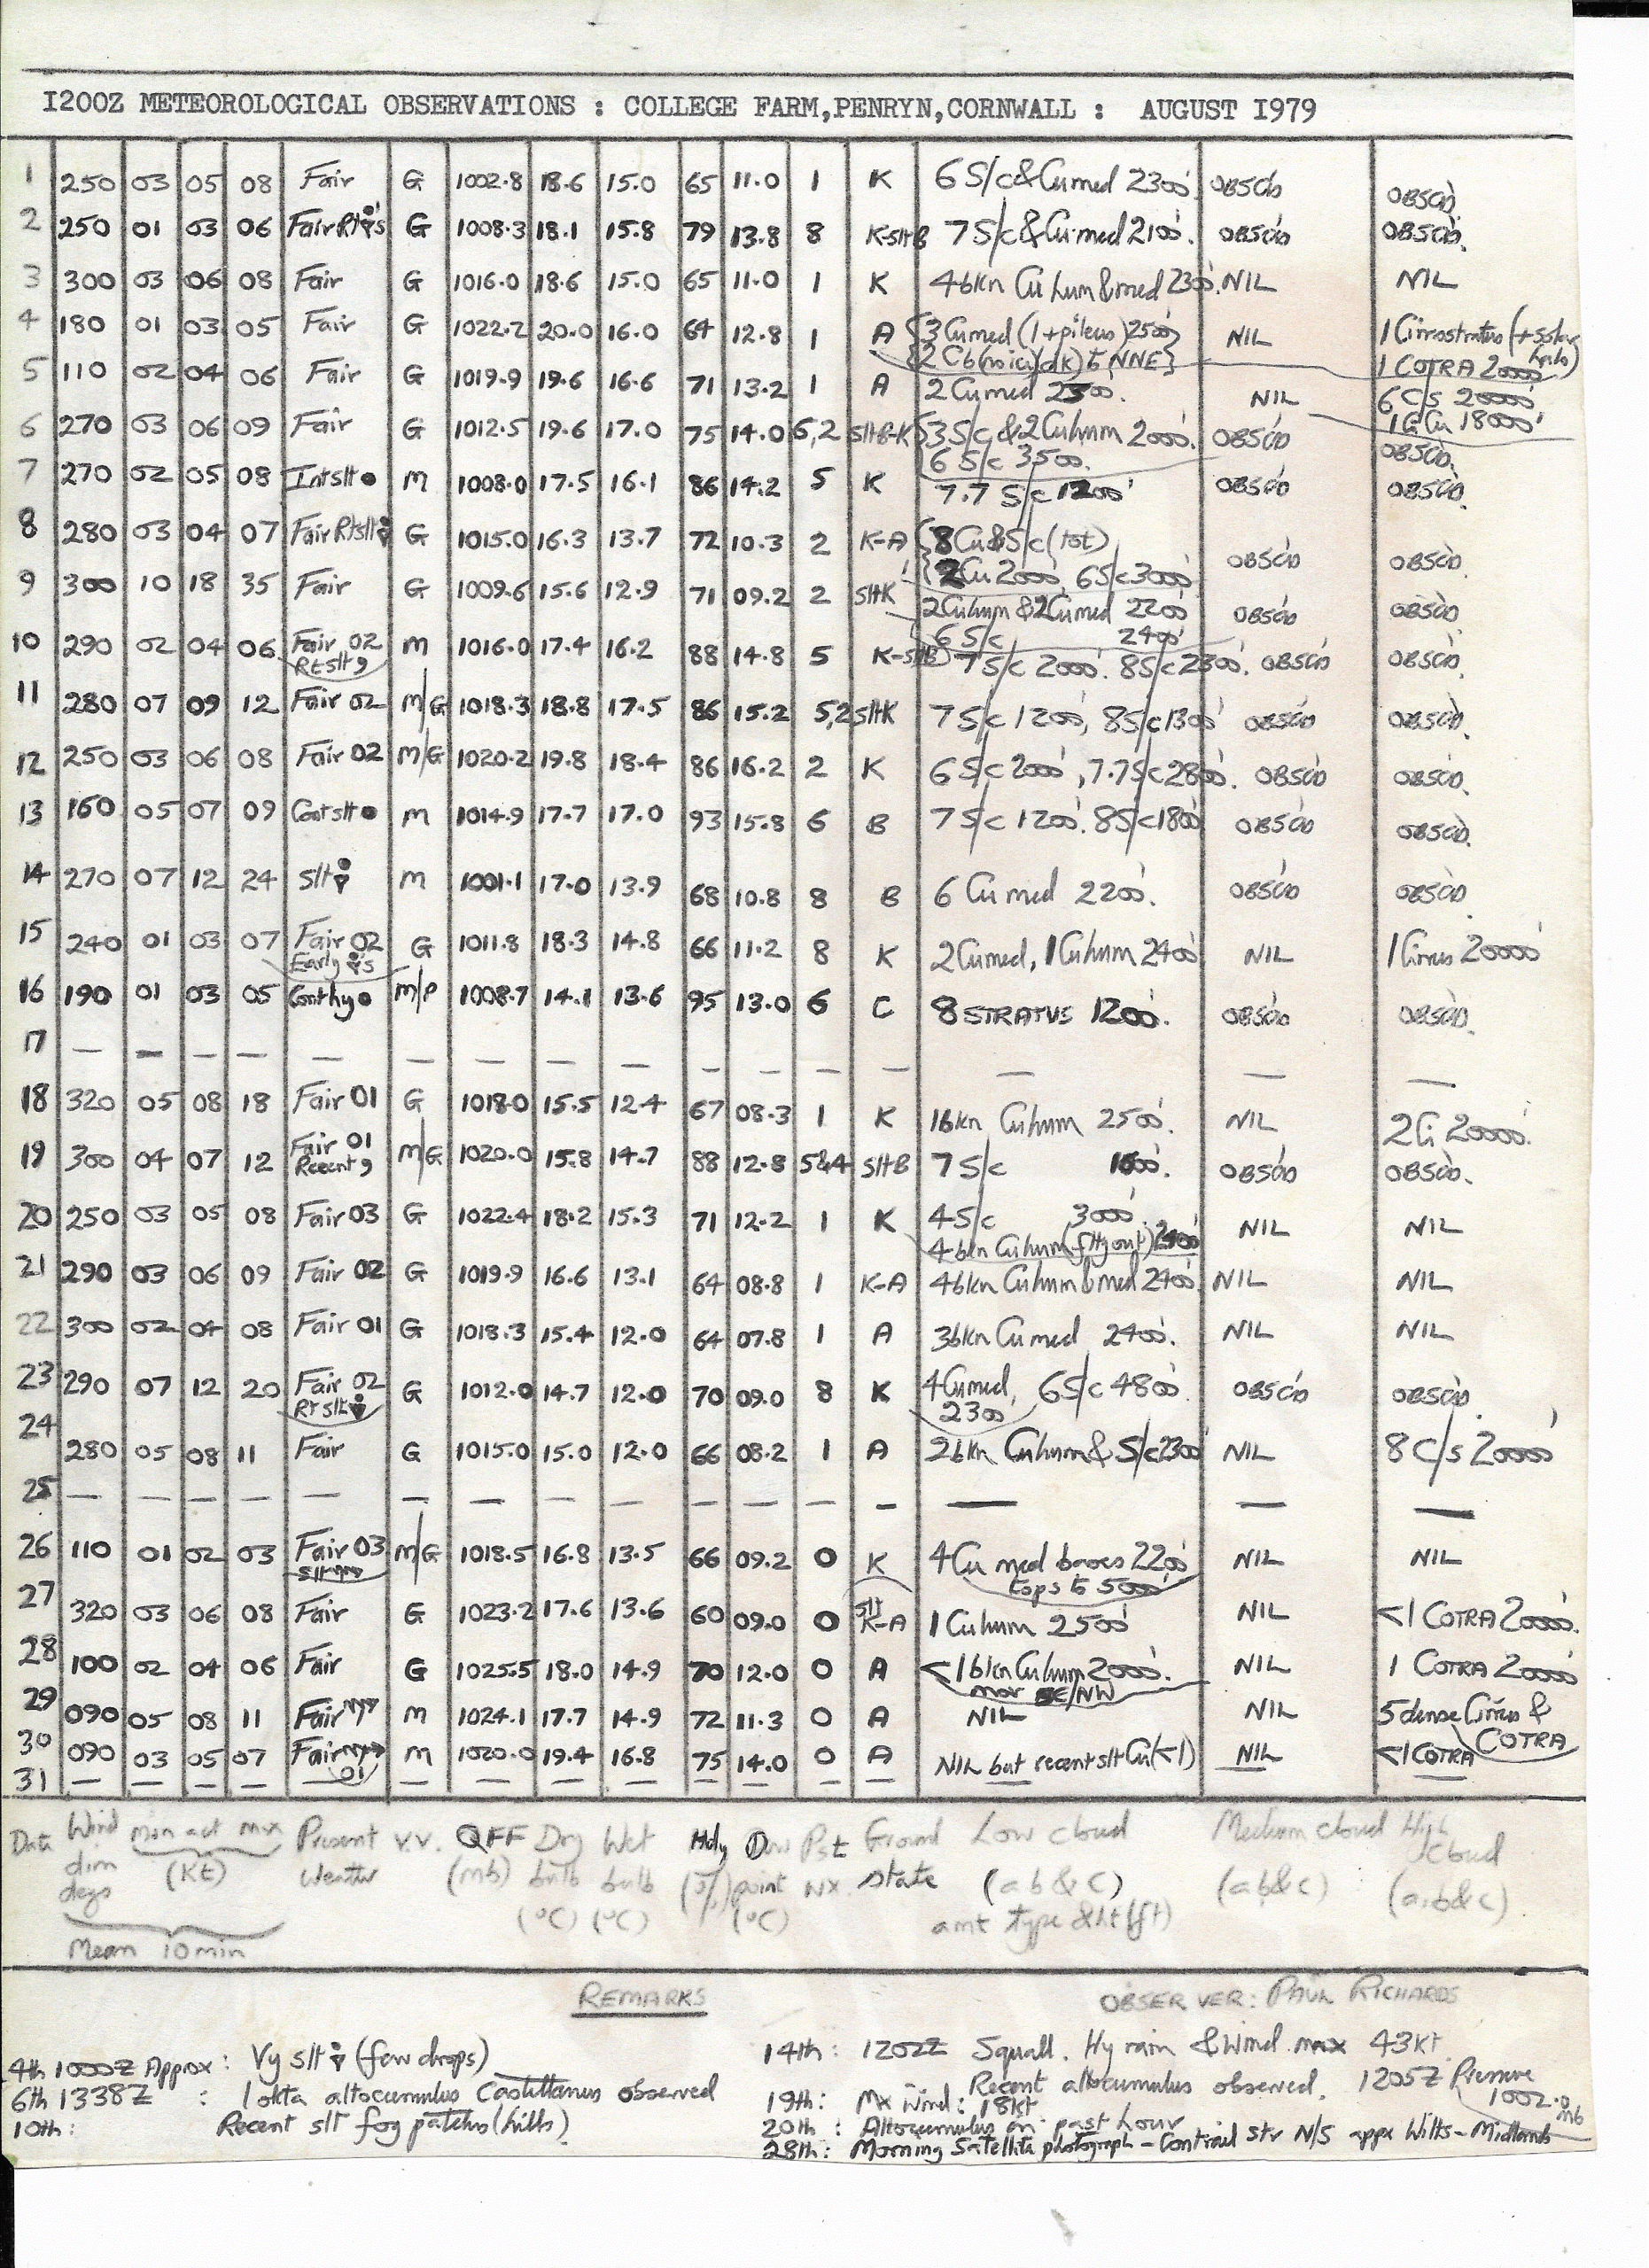 1200Z METEOROLOGICAL OBSERVATIONS : COLLEGE FARM,PENRYN,CORNWALL : AUGUST 1979
1 250 03 05 08 Fair G 1002.8 18.6 15.0 65 11.0 1 K 6 S/c & Cu med 2300' OBSC'D OBSC'D.
2 250 01 03 06 Fair Rt G 1008.3 18.1 15.8 79 13.8 8 K-SltB 7 S/c & Cu med 2100'. OBSC'D OBSC'D.
3 300 03 06 08 Fair G 1016.0 18.6 15.0 65 11.0 1 K 4bkn Cu hum & med 2300'. NIL NIL
4 180 01 03 05 Fair G 1022.2 20.0 16.0 64 12.8 1 A {3 Cu med (1+pileus) 2500'} NIL 1 Cirrostratus (+solar halo)
{2 Cb to NNE} 1 COTRA 20000'
5 110 02 04 06 Fair G 1019.9 19.6 16.6 71 13.2 1 A 2 Cu med 2500'. NIL 6 C/s 20000'
1 CiCu 18000'
6 270 03 06 09 Fair G 1012.5 19.6 17.0 75 14.0 6,2 SltB-K {3 S/c & 2 Cu hum 2000'. OBSC'D OBSC'D.
6 S/c 3500'.
7 270 02 05 08 Int slt ● m 1008.0 17.5 16.1 86 14.2 5 K 7.7 S/c 1200' OBSC'D OBSC'D.
8 280 03 04 07 Fair Rt slt G 1015.0 16.3 13.7 72 10.3 2 K-A {8 Cu & S/c (tot) OBSC'D OBSC'D.
{2 Cu 2000', 6 S/c 3000'
9 300 10 18 35 Fair G 1009.6 15.6 12.9 71 09.2 2 SltK 2 Cu hum & 2 Cu med 2200' OBSC'D OBSC'D.
6 S/c 2400'
10 290 02 04 06 Fair 02 m 1016.0 17.4 16.2 88 14.8 5 K-SltB 7 S/c 2000'. 8 S/c 2300'. OBSC'D OBSC'D.
Rt slt 9
11 280 07 09 12 Fair 02 m/G 1018.3 18.8 17.5 86 15.2 5,2 SltK 7 S/c 1200', 8 S/c 1300' OBSC'D OBSC'D.
12 250 03 06 08 Fair 02 m/G 1020.2 19.8 18.4 86 16.2 2 K 6 S/c 2000', 7.7 S/c 2800'. OBSC'D OBSC'D.
13 160 05 07 09 Cont slt ● m 1014.9 17.7 17.0 93 15.8 6 B 7 S/c 1200'. 8 S/c 1800' OBSC'D OBSC'D.
14 270 07 12 24 Slt m 1001.1 17.0 13.9 68 10.8 8 B 6 Cu med 2200'. OBSC'D OBSC'D.
15 240 01 03 07 Fair 02 G 1011.8 18.3 14.8 66 11.2 8 K 2 Cu med, 1 Cu hum 2400' NIL 1 Cirrus 20000'
Early
16 190 01 03 05 Cont hy ● m/P 1008.7 14.1 13.6 95 13.0 6 C 8 STRATUS 1200'. OBSC'D OBSC'D.
17 — — — — — — — — — — — — — — — —
18 320 05 08 18 Fair 01 G 1018.0 15.5 12.4 67 08.3 1 K 1bkn Cu hum 2500'. NIL 2 Ci 20000'.
19 300 04 07 12 Fair 01 m/G 1020.0 15.8 14.7 88 12.8 5&4 SltB 7 S/c OBSC'D OBSC'D.
Recent 9
20 250 03 05 08 Fair 03 G 1022.4 18.2 15.3 71 12.2 1 K 4 S/c 3000' NIL NIL
4bkn Cu hum 2400'
21 290 03 06 09 Fair 02 G 1019.9 16.6 13.1 64 08.8 1 K-A 4bkn Cu hum & med 2400' NIL NIL
22 300 02 04 08 Fair 01 G 1018.3 15.4 12.0 64 07.8 1 A 3bkn Cu med 2400'. NIL NIL
23 290 07 12 20 Fair 02 G 1012.0 14.7 12.0 70 09.0 8 K 4 Cu med, 6 S/c 4800' OBSC'D OBSC'D.
Rt slt 2300'
24 280 05 08 11 Fair G 1015.0 15.0 12.0 66 08.2 1 A 2bkn Cu hum & S/c 2300' NIL 8 C/s 20000'
25 — — — — — — — — — — — — — — — —
26 110 01 02 03 Fair 03 m/G 1018.5 16.8 13.5 66 09.2 0 K 4 Cu med bases 2200' NIL NIL
slt tops to 5000'
27 320 03 06 08 Fair G 1023.2 17.6 13.6 60 09.0 0 slt K-A 1 Cu hum 2500' NIL <1 COTRA 20000'.
28 100 02 04 06 Fair G 1025.5 18.0 14.9 70 12.0 0 A <1bkn Cu hum 2000'. NIL 1 COTRA 20000'
mov SE/NW
29 090 05 08 11 Fair m 1024.1 17.7 14.9 72 11.3 0 A NIL NIL 5 dense Cirrus & COTRA
30 090 03 05 07 Fair 01 m 1020.0 19.4 16.8 75 14.0 0 A NIL but recent slt Cu (<1) NIL <1 COTRA
31 — — — — — — — — — — — —
Date Wind min act mx Present V.V. QFF Dry Wet Hdy Dew Pst Ground Low cloud Medium cloud High cloud
dirn degs (Kt) Weather (mb) bulb bulb (%) point Wx. state (a b & c) (a b & c) (a, b & c)
(°C) (°C) (°C) amt type & ht (ft)
Mean 10 min
REMARKS OBSERVER: PAUL RICHARDS
4th 1000Z Approx: Vy slt (few drops)
6th 1338Z : 1 okta altocumulus Castellanus observed
10th: Recent slt fog patches (hills)
14th: 1202Z Squall. Hy rain & Wind max 43Kt.
Recent altocumulus observed. 1205Z Pressure 1002.0 mb
19th: Mx Wind: 18Kt
20th: Altocumulus in past hour
28th: Morning Satellite photograph - Contrail str N/S appx Wilts - Midlands